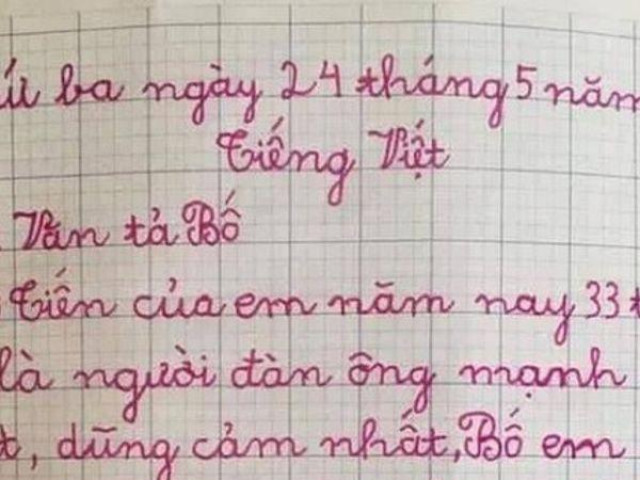 ba ngày 24 tháng 5 năm
Tiếng Việt
Văn tả Bố
Tiến của em năm nay 33
là người đàn ông mạnh
dũng cảm nhất, Bố em